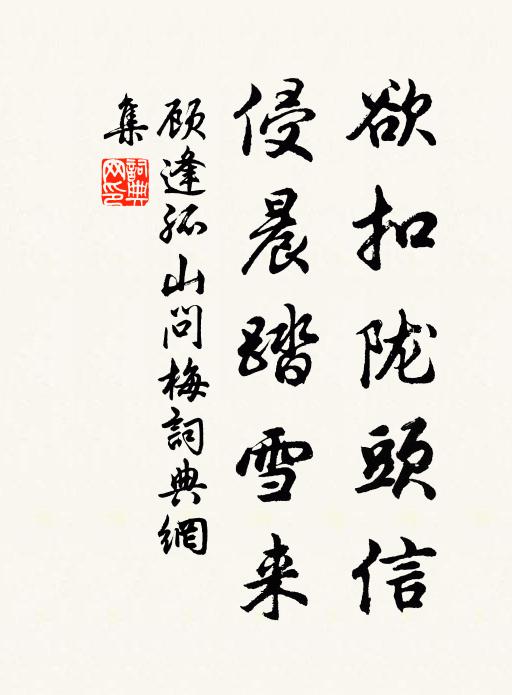 欲扣陇頭信
侵晨踏雪来
顾逢孤山问梅詞典網
集
詞典網印